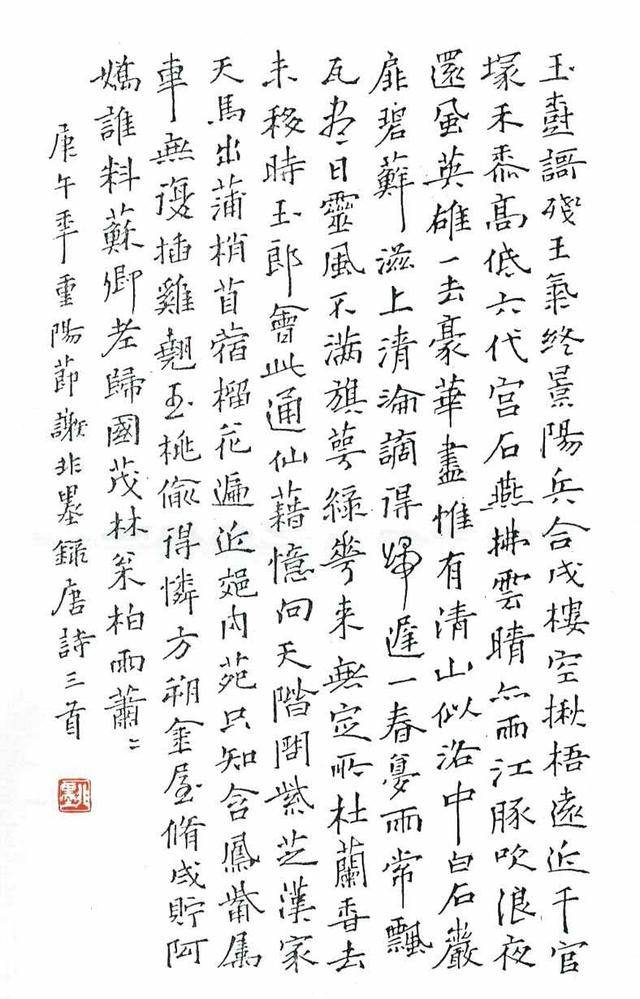 玉樹謌殘王氣終景陽兵合戍樓空楸梧遠近千官
塚禾黍高低六代宮石燕拂雲晴亦雨江豚吹浪夜
還風英雄一去豪華盡惟有清山似洛中白石巖
扉碧蘚滋上清淪謫得歸遲一春夢雨常飄
瓦尽日靈風不滿旗萼綠華來無定所杜蘭香去
未移時玉郎會此通仙籍憶向天階問紫芝漢家
天馬出蒲梢苜蓿榴花遍近郊內苑只知含鳳觜屬
車無復插雞翹玉桃偷得憐方朔金屋脩成貯阿
嬌誰料蘇卿老歸國茂林枀柏雨蕭〻
庚午年重陽節謝非墨錄唐詩三首
非墨